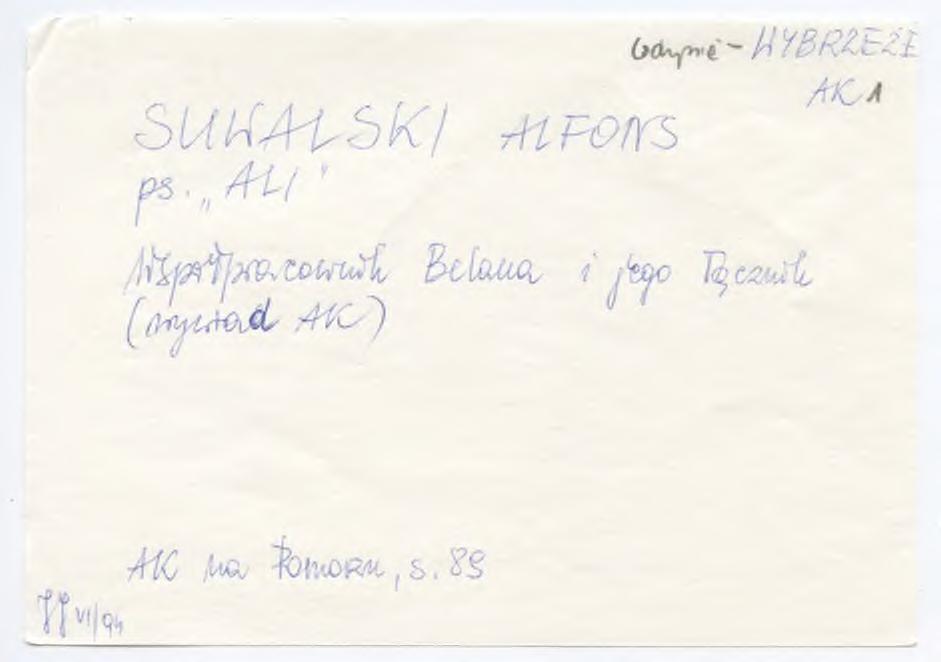 Gdynia - WYBRZEŻE
AK 1
SUWALSKI ALFONS
ps. „ALI"
Współpracownik Belaua i jego łącznik
(wywiad AK)
AK na Pomorzu, s. 89
VI/94